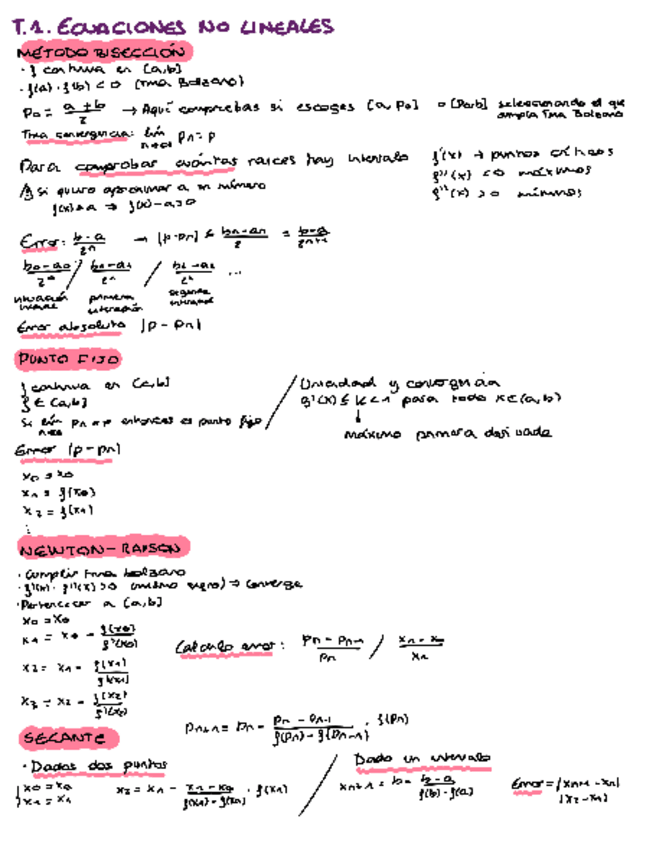 T.1. ECUACIONES NO LINEALES
MÉTODO BISECCIÓN
· f continua en [a,b]
· f(a) · f(b) < 0 (Tma Bolzano)
p0 = (a + b)/2 → Aquí compruebas si escoges [a, p0] o [p0,b] seleccionando el que cumpla Tma Bolzano
Tma convergencia: lím n→∞ pn = p
Para comprobar cuántas raíces hay intervalo f'(x) → puntos críticos
f''(x) < 0 máximos
f''(x) > 0 mínimos
si quiero aproximar a un número
f(x) = a → f(x) - a = 0
Error: (b - a)/2^n → |p - pn| ≤ (bn - an)/2 = (b - a)/2^(n+1)
(b0 - a0)/2^0 / (b1 - a1)/2^1 / (b2 - a2)/2^2 ...
primera
segunda
Error absoluto |p - pn|
PUNTO FIJO
f continua en [a,b]
f ∈ [a,b]
Si lím n→∞ pn = p entonces es punto fijo
Unicidad y convergencia
g'(x) ≤ k < 1 para todo x ∈ (a,b)
↓
máximo primera derivada
Error |p - pn|
x0 = x0
x1 = f(x0)
x2 = f(x1)
⋮
NEWTON - RAPSON
· Cumplir tma bolzano
· f''(x) > 0 (mismo signo) → converge
· Pertenecer a [a,b]
x0 = x0
x1 = x0 - f(x0)/f'(x0)
x2 = x1 - f(x1)/f'(x1)
x3 = x2 - f(x2)/f'(x2)
Calculo error: (pn - pn-1)/pn / (x1 - x0)/x1
SECANTE
pn+1 = pn - (pn - pn-1)/(f(pn) - f(pn-1)) · f(pn)
· Dadas dos puntos
x0 = x0
x1 = x1
x2 = x1 - (x1 - x0)/(f(x1) - f(x0)) · f(x1)
Dado un intervalo
xn+1 = b - (b - a)/(f(b) - f(a))
Error = |xn+1 - xn|
|x2 - x1|